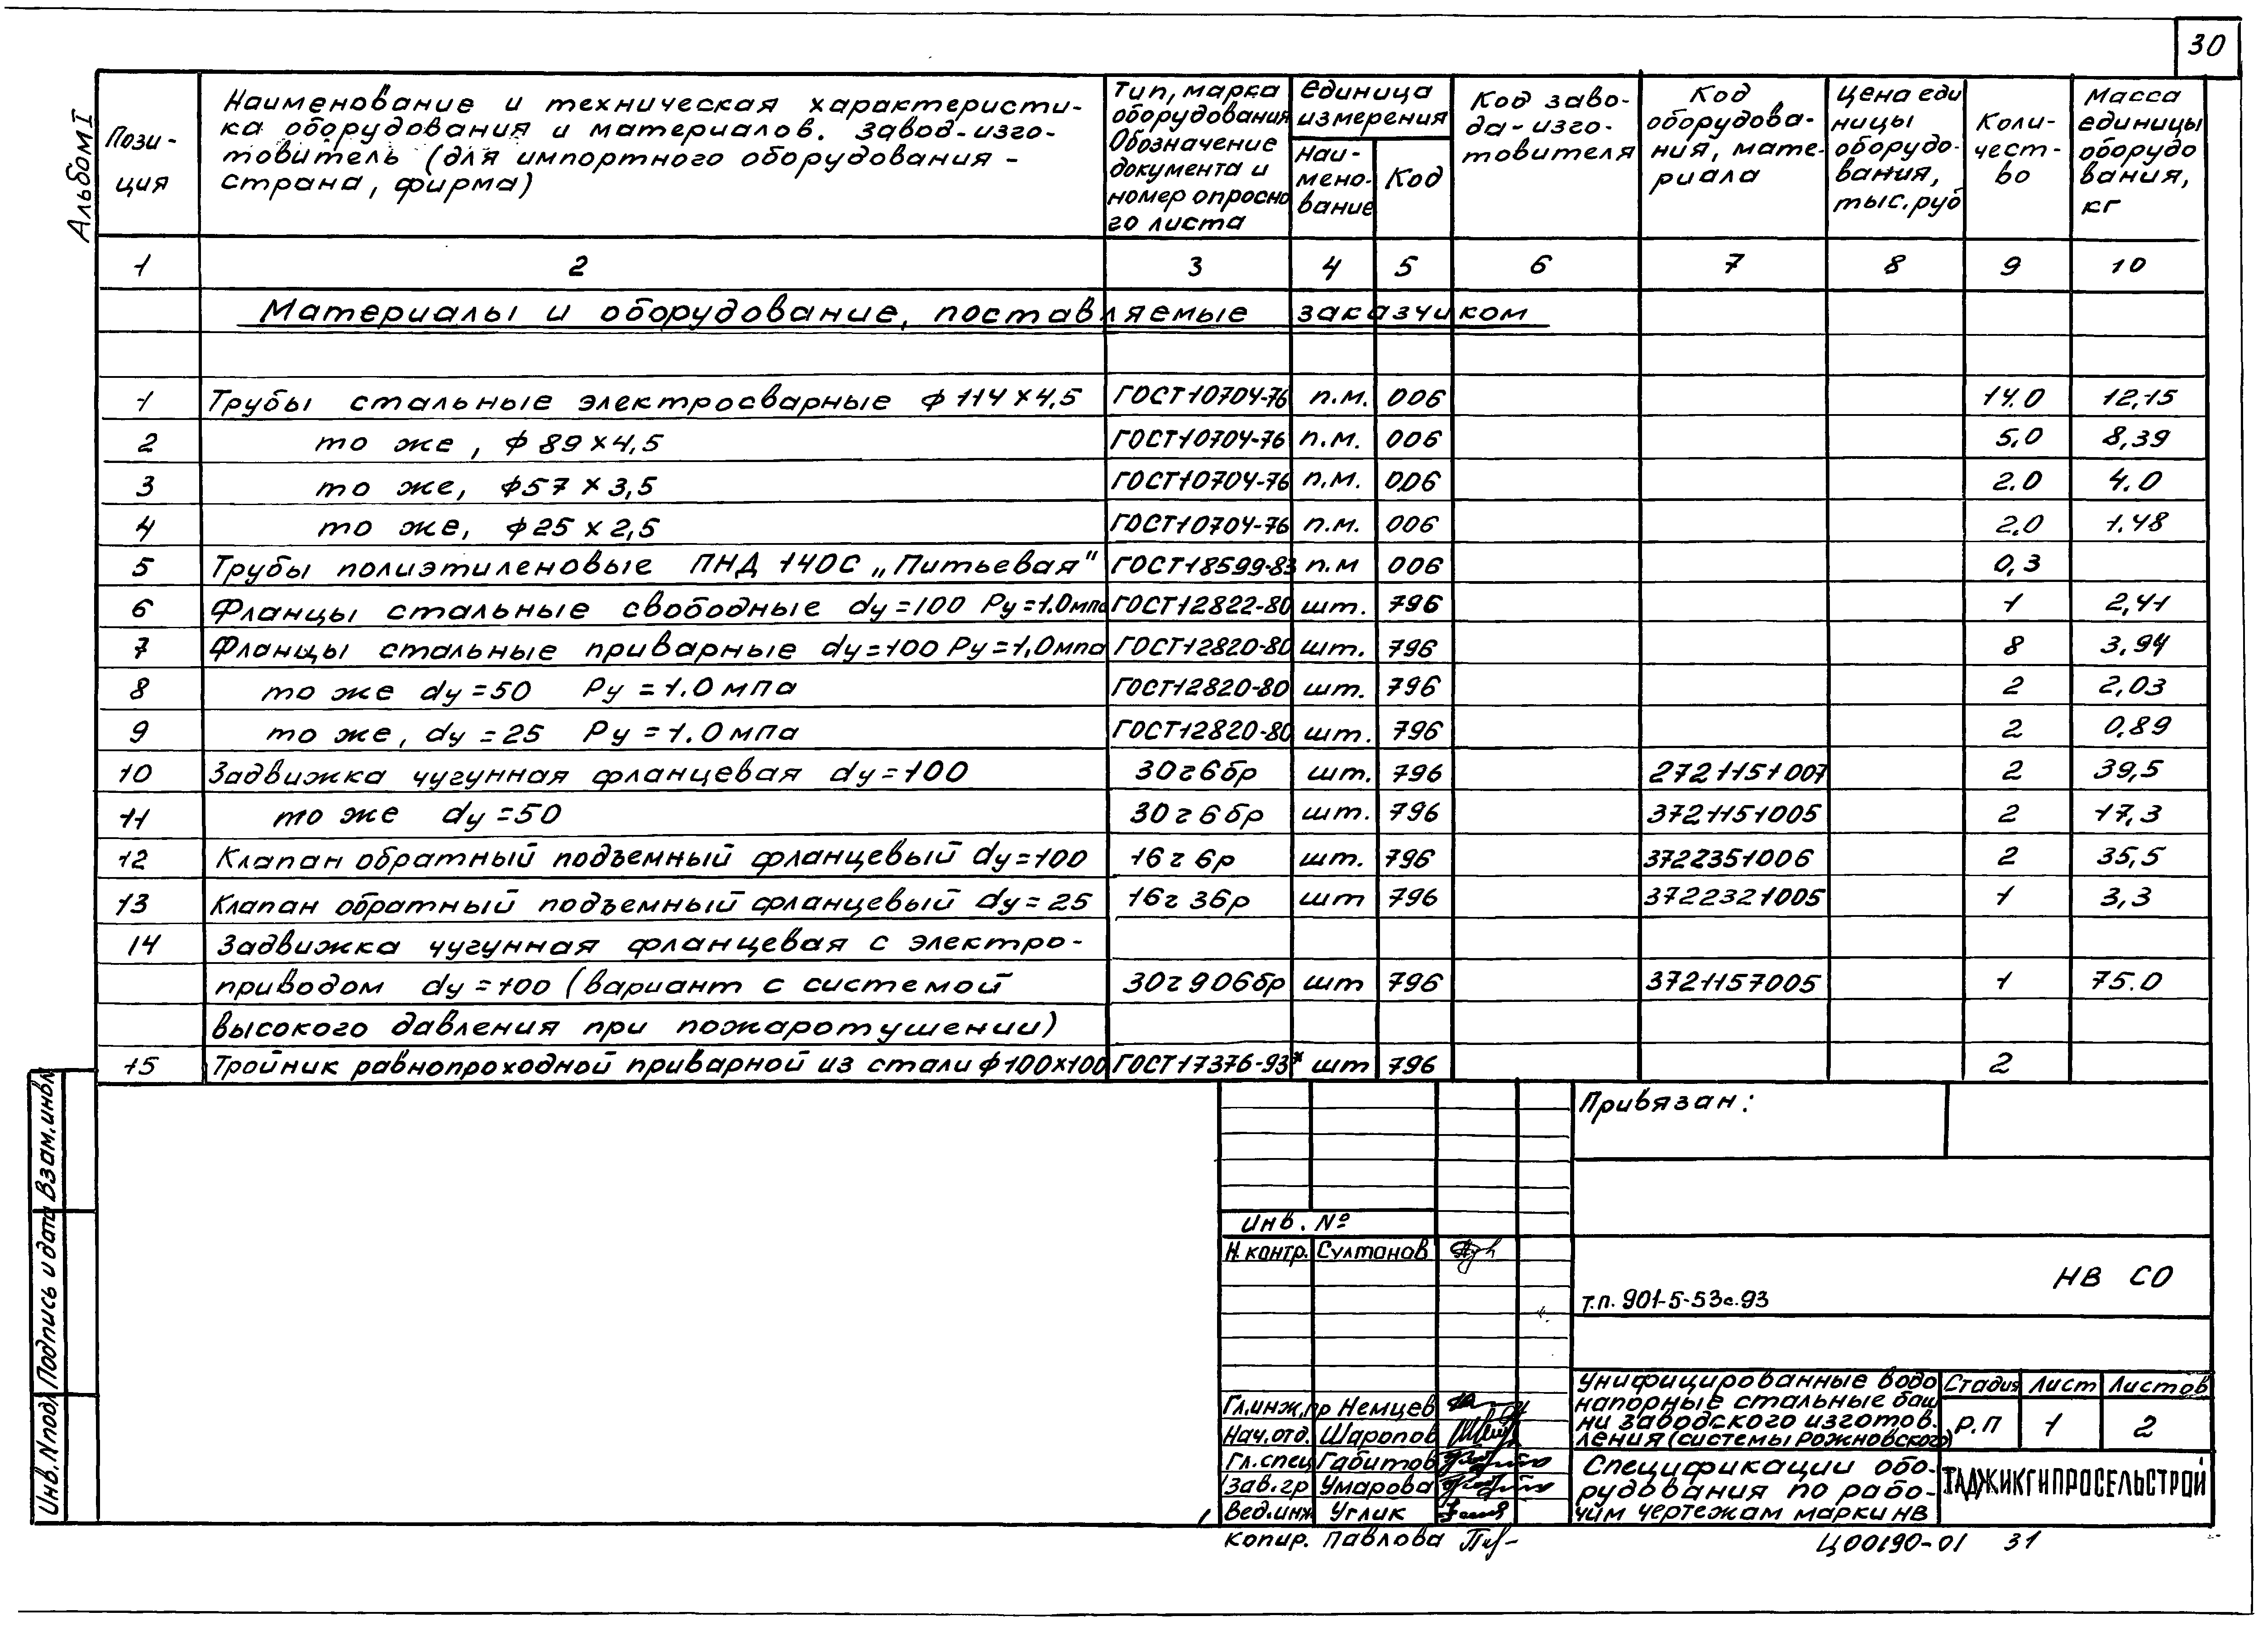 30
Альбом I
Пози-
ция
Наименование и техническая характеристи-
ка оборудования и материалов. Завод-изго-
товитель (для импортного оборудования -
страна, фирма)
Тип, марка
оборудования
Обозначение
документа и
номер опросно
го листа
Единица
измерения
Наи-
мено-
вание
Код
Код заво-
да-изго-
товителя
Код
оборудова-
ния, мате-
риала
Цена еди
ницы
оборудо-
вания,
тыс. руб
Коли-
чест-
во
Масса
единицы
оборудо
вания,
кг
1 2 3 4 5 6 7 8 9 10
Материалы и оборудование, поставляемые заказчиком
1 Трубы стальные электросварные ф 114×4,5 ГОСТ10704-76 п.м. 006 14.0 12,15
2 то же, ф 89×4,5 ГОСТ10704-76 п.м. 006 5,0 8,39
3 то же, ф57×3,5 ГОСТ10704-76 п.м. 006 2.0 4.0
4 то же, ф25×2,5 ГОСТ10704-76 п.м. 006 2,0 1.48
5 Трубы полиэтиленовые ПНД 140С „Питьевая" ГОСТ18599-83 п.м 006 0,3
6 Фланцы стальные свободные dy=100 Ру=1.0мпа ГОСТ12822-80 шт. 796 1 2,41
7 Фланцы стальные приварные dy=100 Ру=1,0мпа ГОСТ12820-80 шт. 796 8 3,94
8 то же dy=50 Ру=1.0мпа ГОСТ12820-80 шт. 796 2 2,03
9 то же, dy=25 Ру=1.0мпа ГОСТ12820-80 шт. 796 2 0,89
10 Задвижка чугунная фланцевая dy=100 30ч6бр шт. 796 2721151007 2 39,5
11 то же dy=50 30ч6бр шт. 796 3721151005 2 17,3
12 Клапан обратный подъемный фланцевый dy=100 16ч6р шт. 796 3722351006 2 35,5
13 Клапан обратный подъемный фланцевый dy=25 16ч3бр шт 796 3722321005 1 3,3
14 Задвижка чугунная фланцевая с электро-
приводом dy=100 (вариант с системой 30ч906бр шт 796 3721157005 1 75.0
высокого давления при пожаротушении)
15 Тройник равнопроходной приварной из стали ф100×100 ГОСТ17376-93* шт 796 2
Взам.инв№
Подпись и дата
Инв.N подл
Привязан:
Инв. №
Н.контр. Султанов
т.п. 901-5-53с.93
НВ СО
Гл.инж.пр Немцев
Нач.отд. Шаропов
Гл.спец Габитов
Зав.гр Умарова
Вед.инж Углик
Унифицированные водо
напорные стальные баш
ни заводского изготов.
ления (системы Рожновского)
Стадия Лист Листов
Р.П 1 2
Спецификации обо-
рудования по рабо-
чим чертежам марки НВ
ТАДЖИКГИПРОСЕЛЬСТРОЙ
копир. Павлова
Ц00190-01 31